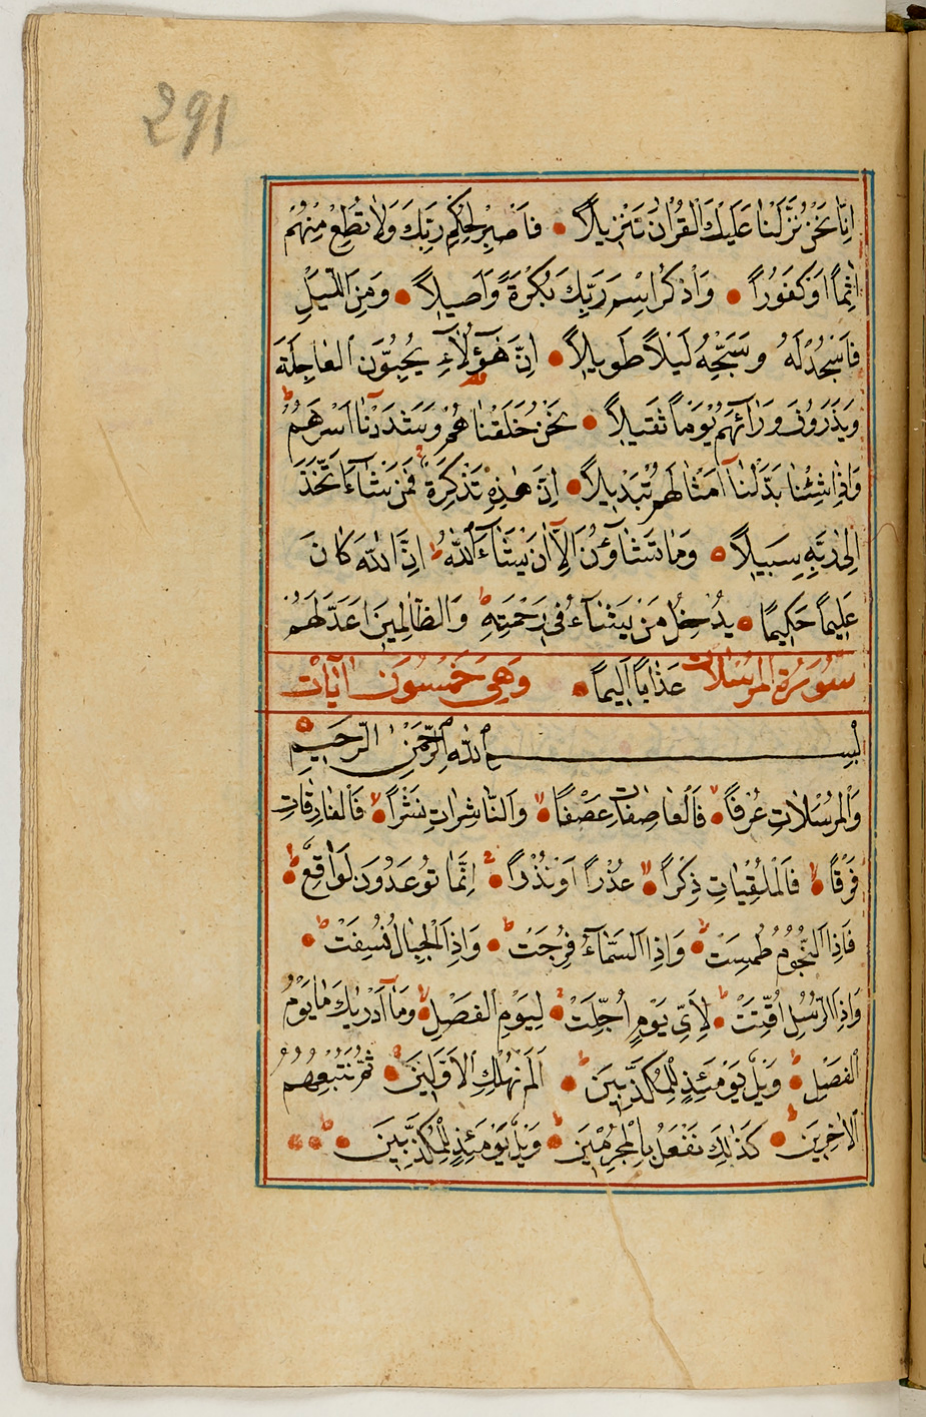 291
اِنَّا نَحْنُ نَزَّلْنَا عَلَيْكَ الْقُرْاٰنَ تَنْزٖيلاًۚ فَاصْبِرْ لِحُكْمِ رَبِّكَ وَلَا تُطِعْ مِنْهُمْ
اٰثِماً اَوْ كَفُوراً وَاذْكُرِ اسْمَ رَبِّكَ بُكْرَةً وَاَصٖيلاً وَمِنَ الَّيْلِ
فَاسْجُدْ لَهُ وَسَبِّحْهُ لَيْلاً طَوٖيلاً اِنَّ هٰٓؤُلَٓاءِ يُحِبُّونَ الْعَاجِلَةَ
وَيَذَرُونَ وَرَٓائَهُمْ يَوْماً ثَقٖيلاً نَحْنُ خَلَقْنَاهُمْ وَشَدَدْنَٓا اَسْرَهُمْ ط
وَاِذَا شِئْنَا بَدَّلْنَٓا اَمْثَالَهُمْ تَبْدٖيلاً اِنَّ هٰذِهٖ تَذْكِرَةٌ فَمَنْ شَٓاءَ اتَّخَذَ
اِلٰى رَبِّهٖ سَبٖيلاً وَمَا تَشَٓاؤُنَ اِلَّٓا اَنْ يَشَٓاءَ اللّٰهُ ط اِنَّ اللّٰهَ كَانَ
عَلٖيماً حَكٖيماً يُدْخِلُ مَنْ يَشَٓاءُ فٖى رَحْمَتِهٖ ط وَالظَّالِمٖينَ اَعَدَّ لَهُمْ
سُورَةُ الْمُرْسَلَاتِ عَذَاباً اَلٖيماً وَهِىَ خَمْسُونَ اٰيَاتْ
بِسْمِ اللّٰهِ الرَّحْمٰنِ الرَّحٖيمِ
وَالْمُرْسَلَاتِ عُرْفاً لا فَالْعَاصِفَاتِ عَصْفاً لا وَالنَّاشِرَاتِ نَشْراً لا فَالْفَارِقَاتِ
فَرْقاً لا فَالْمُلْقِيَاتِ ذِكْراً لا عُذْراً اَوْ نُذْراً اِنَّمَا تُوعَدُونَ لَوَاقِعٌ ط
فَاِذَا النُّجُومُ طُمِسَتْ ط وَاِذَا السَّمَٓاءُ فُرِجَتْ ط وَاِذَا الْجِبَالُ نُسِفَتْ ط
وَاِذَا الرُّسُلُ اُقِّتَتْ ط لِاَىِّ يَوْمٍ اُجِّلَتْ لِيَوْمِ الْفَصْلِ وَمَٓا اَدْرٰيكَ مَا يَوْمُ
الْفَصْلِ ط وَيْلٌ يَوْمَئِذٍ لِلْمُكَذِّبٖينَ ط اَلَمْ نُهْلِكِ الْاَوَّلٖينَ ثُمَّ نُتْبِعُهُمُ
الْاٰخِرٖينَ ط كَذٰلِكَ نَفْعَلُ بِالْمُجْرِمٖينَ ط وَيْلٌ يَوْمَئِذٍ لِلْمُكَذِّبٖينَ ط